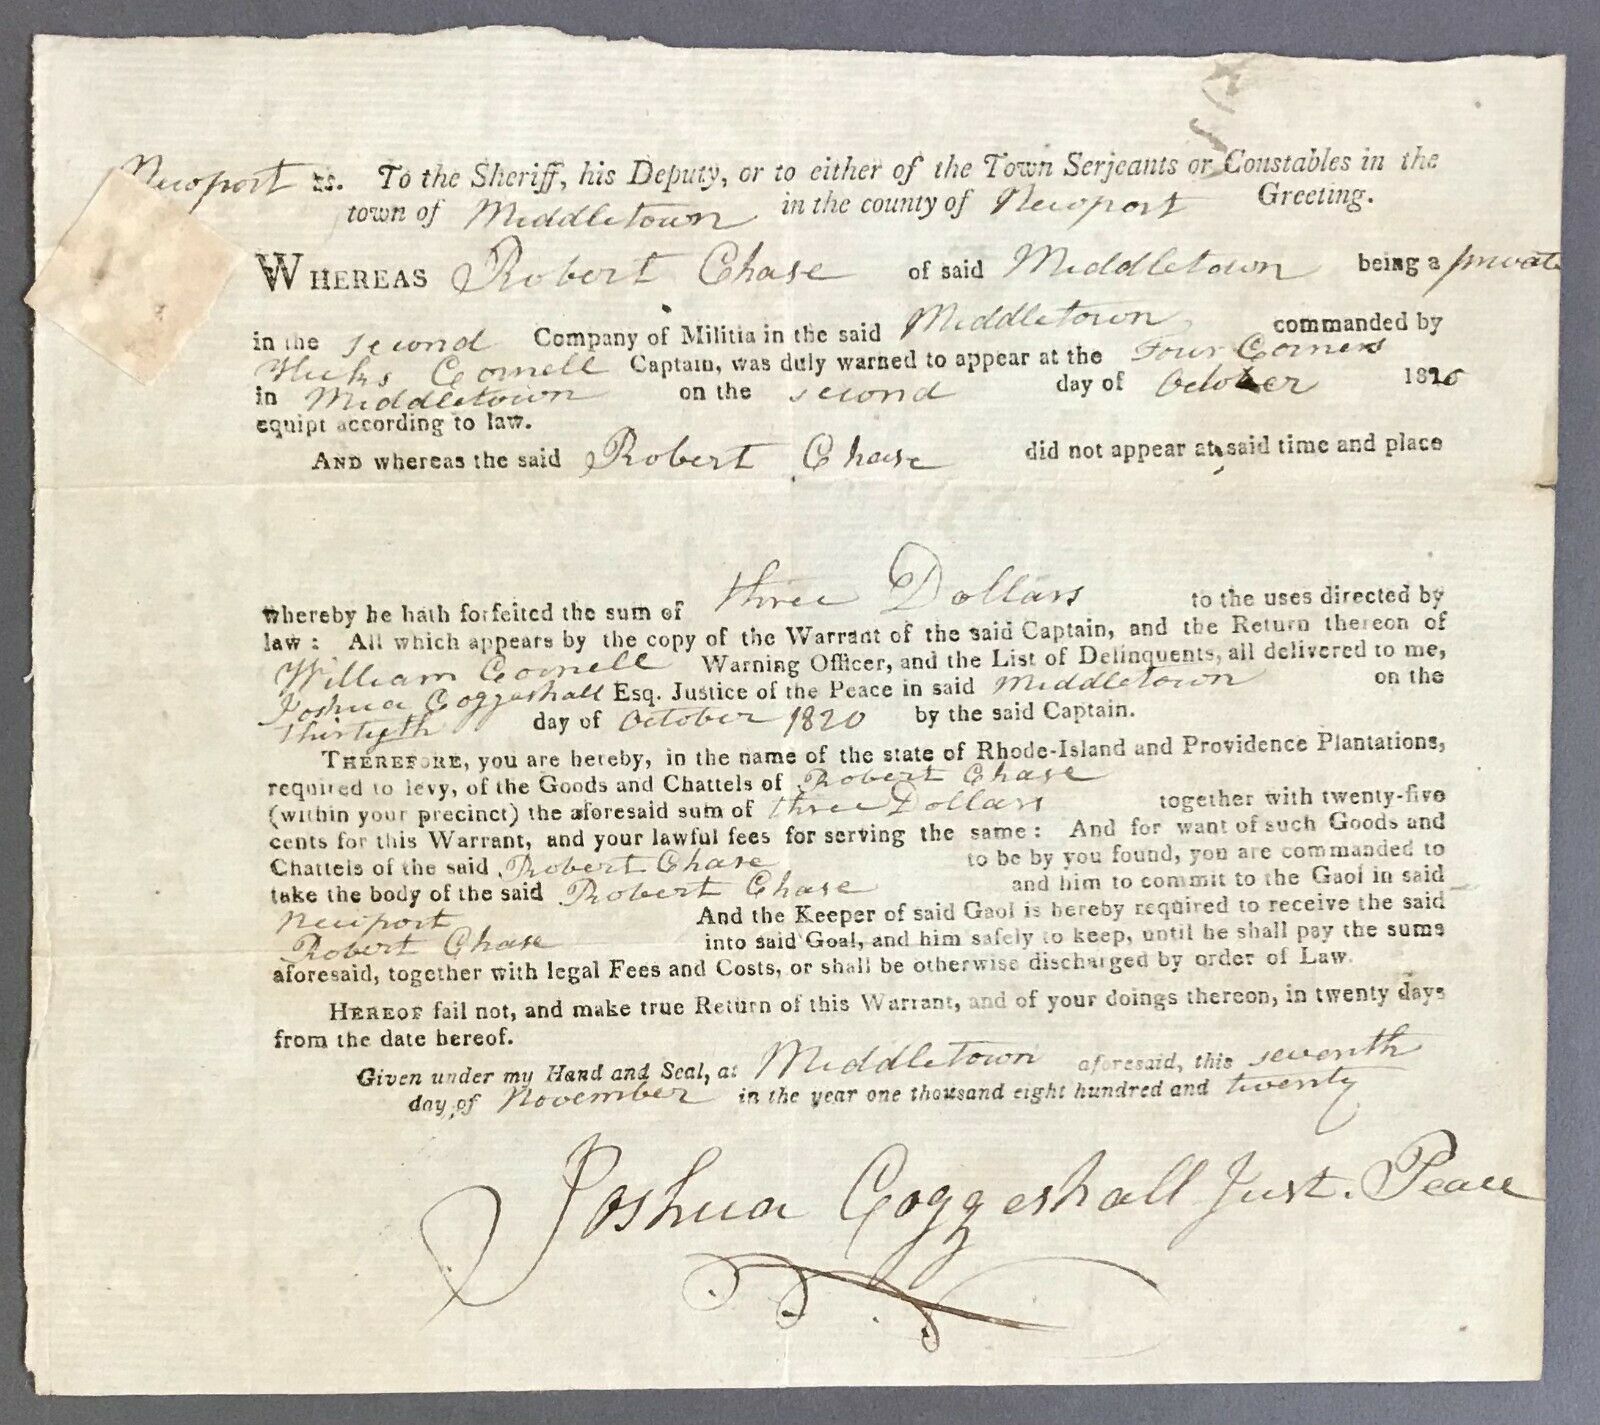 Newport ss. To the Sheriff, his Deputy, or to either of the Town Serjeants or Constables in the
town of Middletown in the county of Newport Greeting.
WHEREAS Robert Chase of said Middletown being a private
in the second Company of Militia in the said Middletown commanded by
Hicks Cornell Captain, was duly warned to appear at the Four Corners
in Middletown on the second day of October 1820
equipt according to law.
AND whereas the said Robert Chase did not appear at said time and place
whereby he hath forfeited the sum of three Dollars to the uses directed by
law: All which appears by the copy of the Warrant of the said Captain, and the Return thereon of
William Cornell Warning Officer, and the List of Delinquents, all delivered to me,
Joshua Coggeshall Esq. Justice of the Peace in said Middletown on the
Thirtyth day of October 1820 by the said Captain.
THEREFORE, you are hereby, in the name of the state of Rhode-Island and Providence Plantations,
required to levy, of the Goods and Chattels of Robert Chase
(within your precinct) the aforesaid sum of three Dollars together with twenty-five
cents for this Warrant, and your lawful fees for serving the same: And for want of such Goods and
Chattels of the said Robert Chase to be by you found, you are commanded to
take the body of the said Robert Chase and him to commit to the Gaol in said
Newport And the Keeper of said Gaol is hereby required to receive the said
Robert Chase into said Goal, and him safely to keep, until he shall pay the sums
aforesaid, together with legal Fees and Costs, or shall be otherwise discharged by order of Law.
HEREOF fail not, and make true Return of this Warrant, and of your doings thereon, in twenty days
from the date hereof.
Given under my Hand and Seal, at Middletown aforesaid, this seventh
day of November in the year one thousand eight hundred and twenty
Joshua Coggeshall Just. Peace